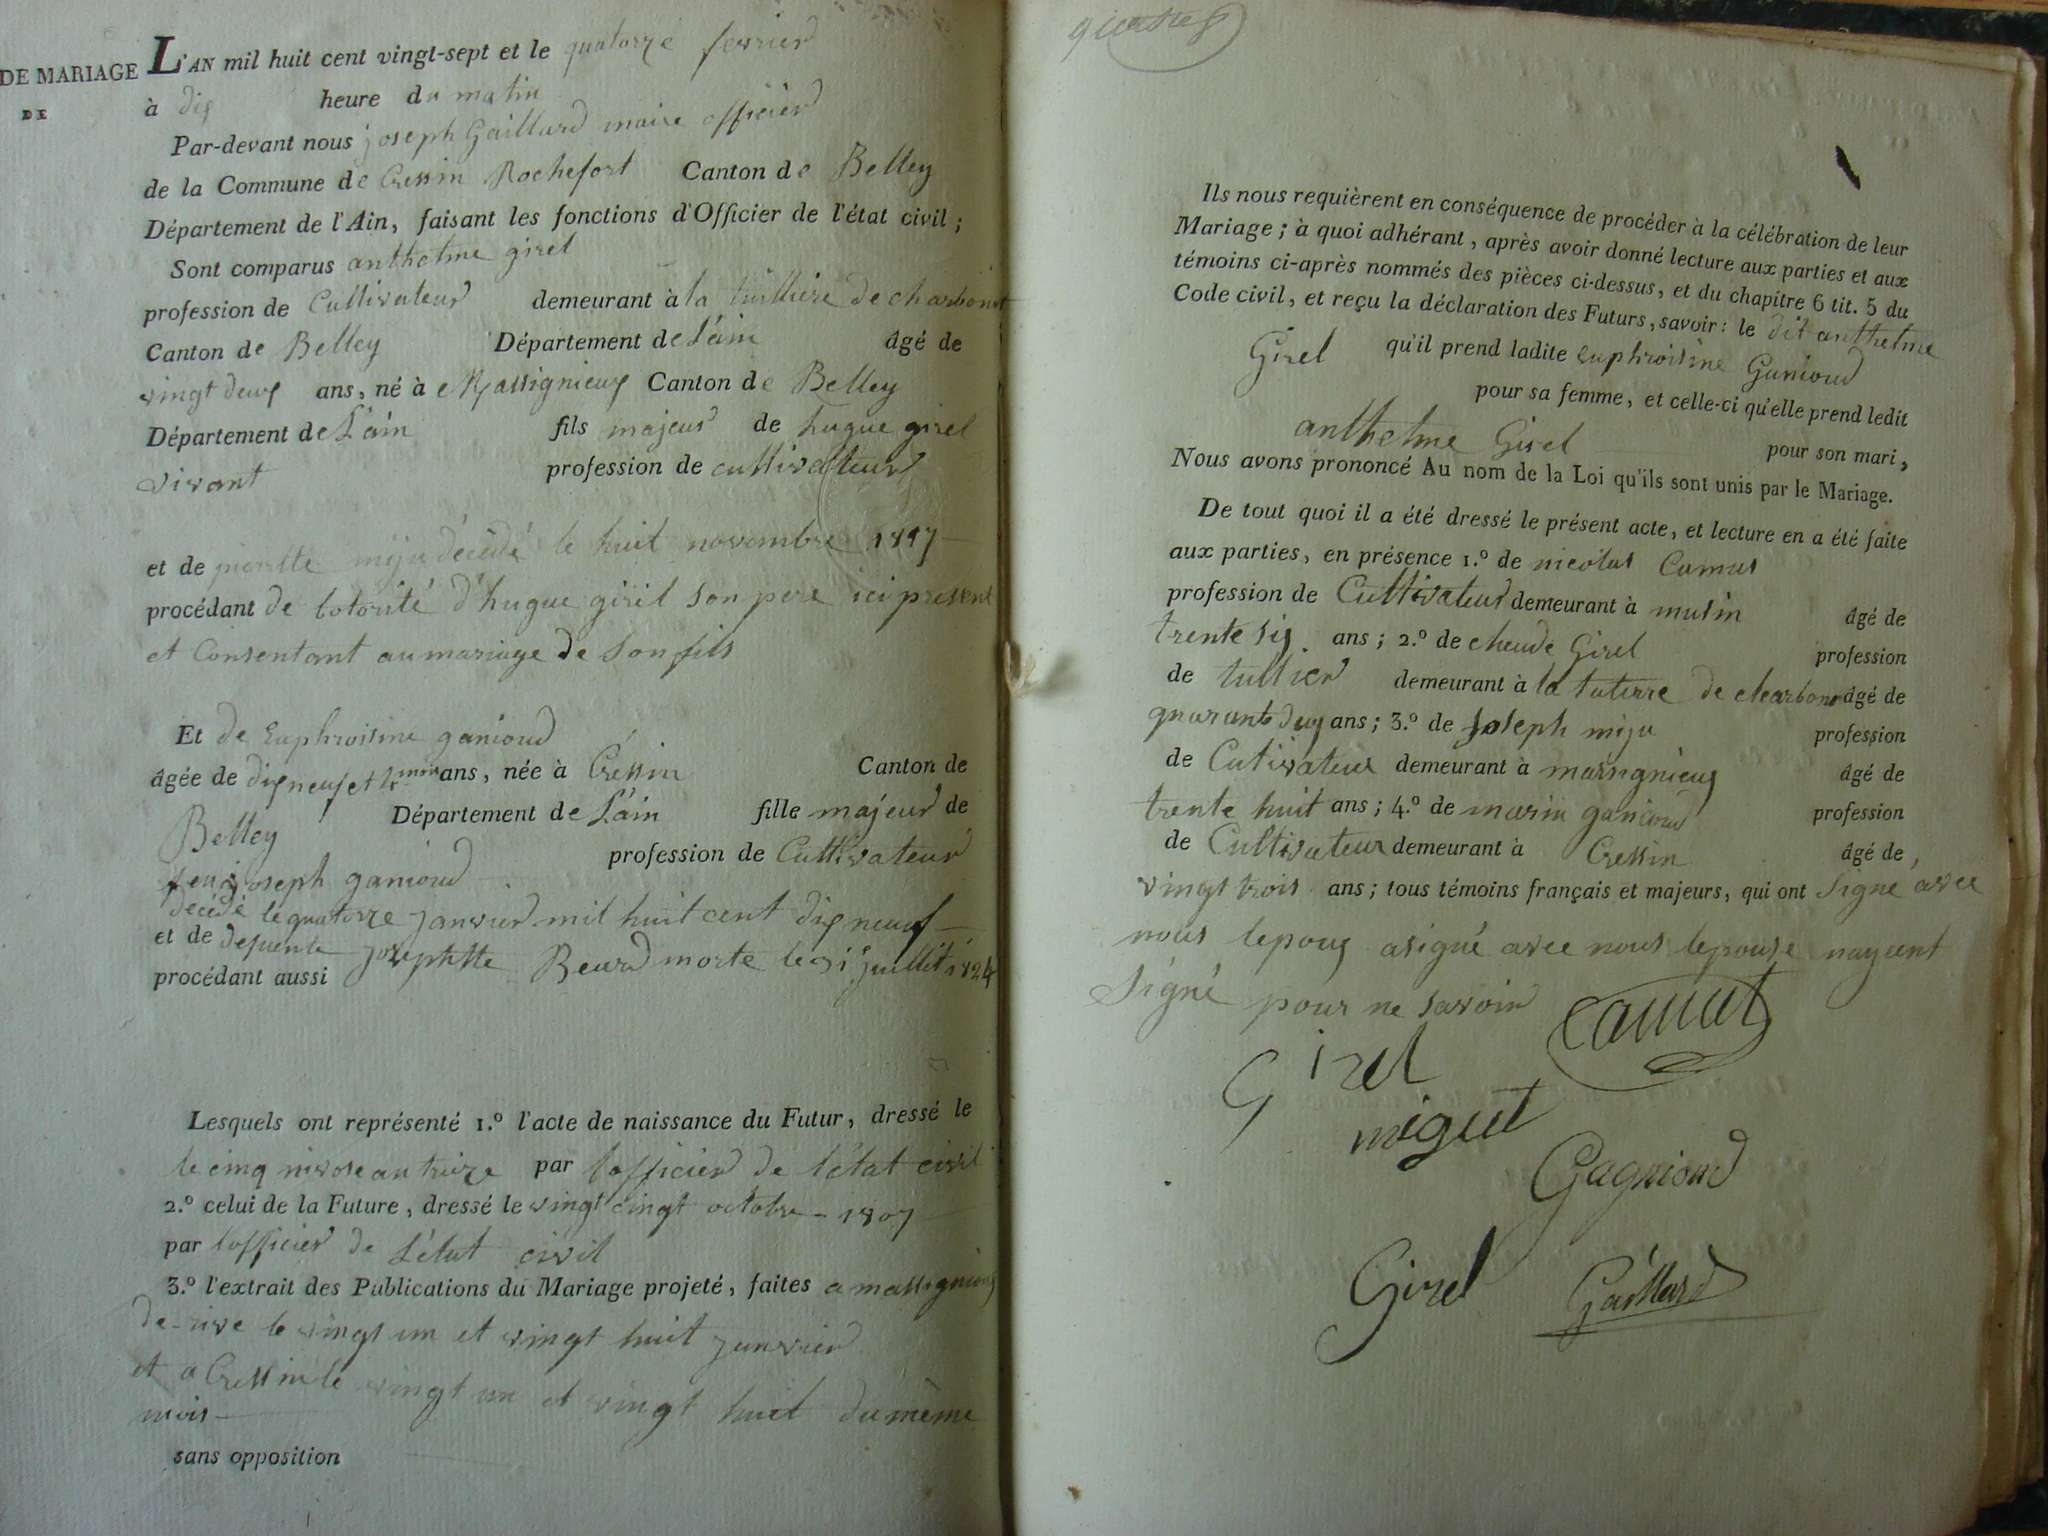 DE MARIAGE
DE
L'AN mil huit cent vingt-sept et le quatorze fevrier
à dix heure du matin
Par-devant nous joseph Gaillard maire officier
de la Commune de Cressin Rochefort Canton de Belley
Département de l'Ain, faisant les fonctions d'Officier de l'état civil ;
Sont comparus anthelme girel
profession de Cultivateur demeurant à la tuilliere de charbonot
Canton de Belley Département de L'ain âgé de
vingt deux ans, né à Massignieux Canton de Belley
Département de L'ain fils majeur de hugue girel
vivant profession de cultivateur
et de pierrette miju décédé le huit novembre 1817
procédant de lotorité d'hugue girel son pere ici present
et Consentant au mariage de Son fils
Et de Euphroisine ganioud
âgée de dix neuf et 4 mois ans, née à Cressin Canton de
Belley Département de L'ain fille majeur de
feu joseph ganioud profession de Cultivateur
décédé le quatorze janvier mil huit cent dix neuf
et de defuente josephtte Beurd morte le 31 juillit 1824
procédant aussi
Lesquels ont représenté 1.º l'acte de naissance du Futur, dressé le
le cinq nivose an treize par lofficier de l'état civil
2.º celui de la Future, dressé le vingt cingt octobre - 1807
par lofficier de L'état civil
3.º l'extrait des Publications du Mariage projeté, faites a massignieux
de rive le vingt un et vingt huit janvier
et a Cressin le vingt un et vingt huit du même
mois
sans opposition
quatre
Ils nous requièrent en conséquence de procéder à la célébration de leur
Mariage ; à quoi adhérant, après avoir donné lecture aux parties et aux
témoins ci-après nommés des pièces ci-dessus, et du chapitre 6 tit. 5 du
Code civil, et reçu la déclaration des Futurs, savoir : le dit anthelme
Girel qu'il prend ladite Euphroisine Ganioud
pour sa femme, et celle-ci qu'elle prend ledit
anthelme Girel pour son mari,
Nous avons prononcé Au nom de la Loi qu'ils sont unis par le Mariage.
De tout quoi il a été dressé le présent acte, et lecture en a été faite
aux parties, en présence 1.º de nicolas Camus
profession de Cultivateur demeurant à musin âgé de
trente six ans ; 2.º de cheude Girel profession
de tullier demeurant à la tuterre de charbonot âgé de
quarante dux ans ; 3.º de joseph miju profession
de Cutivateur demeurant à massignieux âgé de
trente huit ans ; 4.º de marin ganioud profession
de Cultivateur demeurant à Cressin âgé de,
vingt trois ans ; tous témoins français et majeurs, qui ont Signé avec
nous lepoux asigné avec nous lepouse nayant
Signé pour ne savoir
Camut
Girel
migut
Gagnioud
Girel
Gaillard